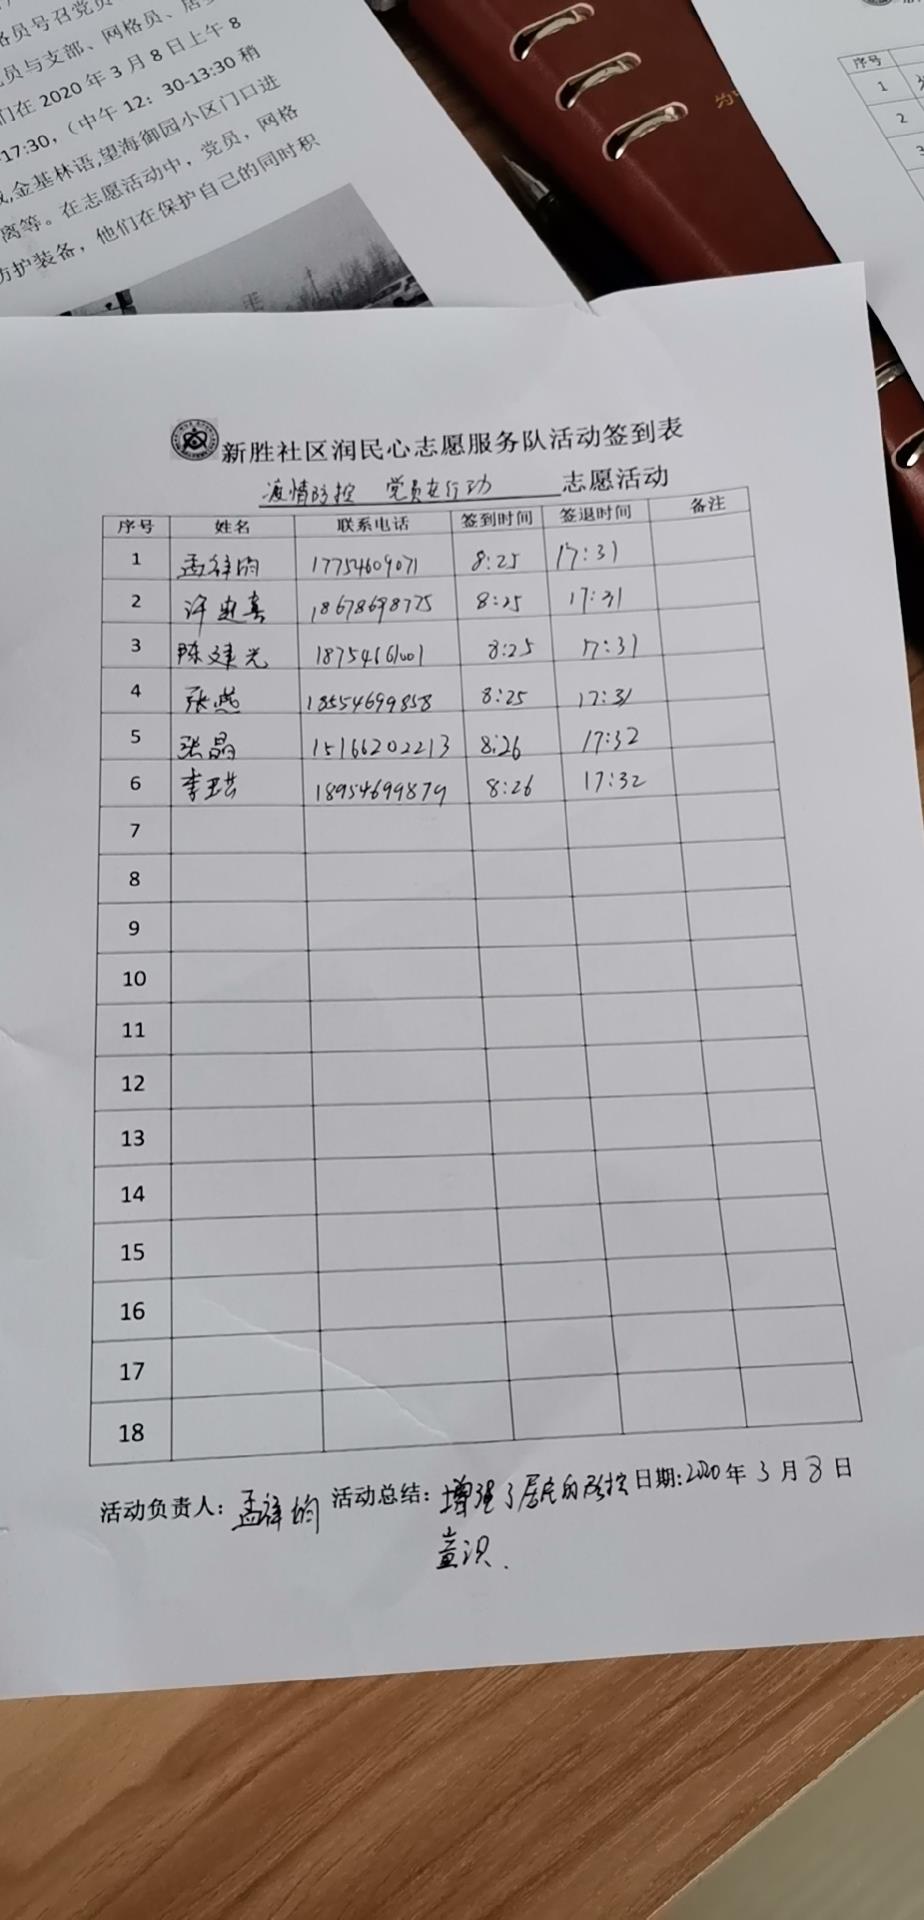 格员号召党员
员与支部、网格员、居
们在 2020 年 3 月 8 日上午 8
17:30,（中午 12：30-13:30 稍
金基林语,望海御园小区门口进
离等。在志愿活动中，党员，网格
防护装备，他们在保护自己的同时积
序号
1
2
3
新胜社区润民心志愿服务队活动签到表
疫情防控 党员在行动 志愿活动
序号 姓名 联系电话 签到时间 签退时间 备注
1 孟祥均 17754609071 8:25 17:31
2 18678698775 8:25 17:31
3 陈建光 18754661001 8:25 17:31
4 张燕 18554699858 8:25 17:31
5 张晶 15166202213 8:26 17:32
6 18954699879 8:26 17:32
7
8
9
10
11
12
13
14
15
16
17
18
活动负责人：孟祥均 活动总结：增强了居民的防控 日期:2020 年 3 月 8 日
意识.